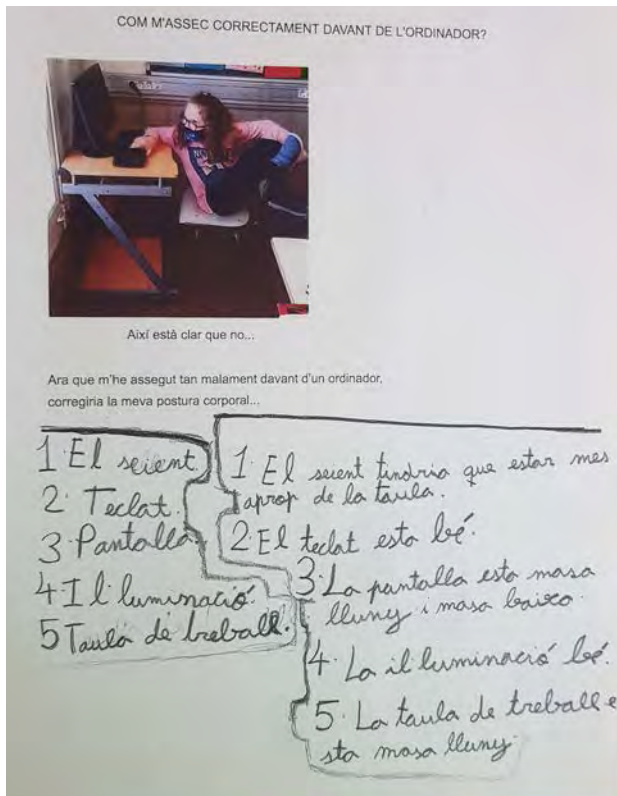 COM M'ASSEC CORRECTAMENT DAVANT DE L'ORDINADOR?
Així està clar que no...
Ara que m'he assegut tan malament davant d'un ordinador,
corregiria la meva postura corporal...
1 El seient.
2. Teclat.
3. Pantalla
4. Il·luminació.
5 Taula de treball.
1. El seient tindria que estar mes
aprop de la taula.
2. El teclat esta bé.
3. La pantalla esta masa
lluny i masa baixo.
4. La il·luminació bé.
5. La taula de treball e
sta masa lluny.